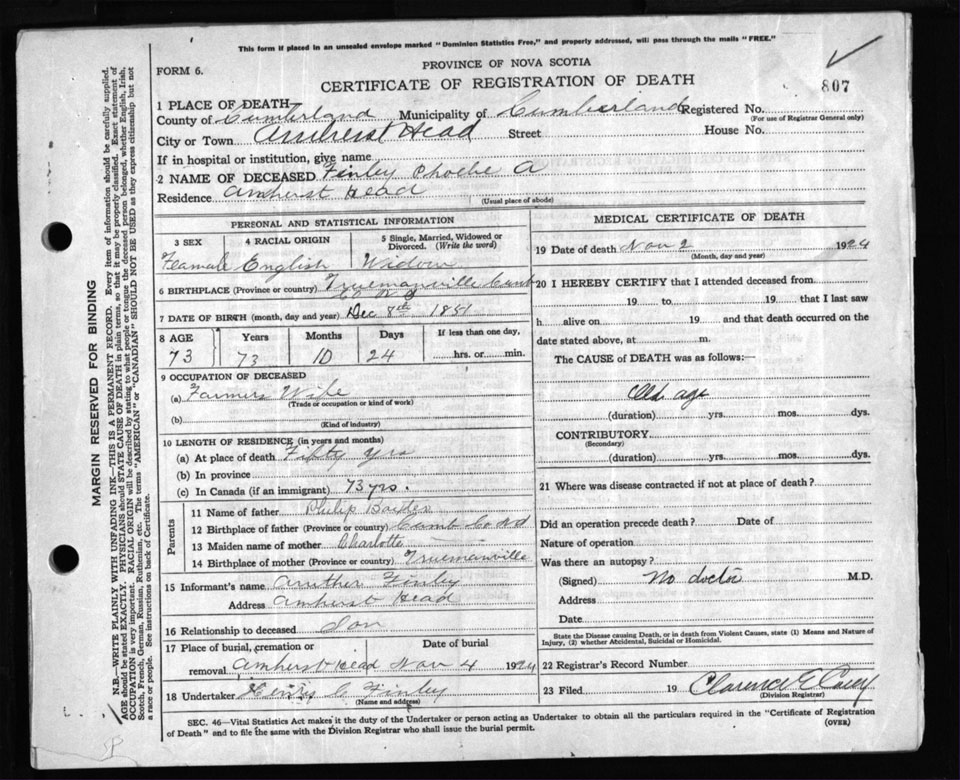 This form if placed in an unsealed envelope marked "Dominion Statistics Free," and properly addressed, will pass through the mails "FREE."
PROVINCE OF NOVA SCOTIA
FORM 6.
CERTIFICATE OF REGISTRATION OF DEATH
807
1 PLACE OF DEATH
County of Cumberland Municipality of Cumberland Registered No.
(For use of Registrar General only)
City or Town Amherst Head Street House No.
If in hospital or institution, give name
2 NAME OF DECEASED Finley Phoebe A
Residence Amherst Head
(Usual place of abode)
PERSONAL AND STATISTICAL INFORMATION
3 SEX 4 RACIAL ORIGIN 5 Single, Married, Widowed or Divorced. (Write the word)
Feamale English Widow
6 BIRTHPLACE (Province or country) Truemanville Cumb
7 DATE OF BIRTH (month, day and year) Dec 8th 1851
8 AGE Years Months Days If less than one day,
73 73 10 24 hrs. or min.
9 OCCUPATION OF DECEASED
(a) Farmers Wife
(Trade or occupation or kind of work)
(b)
(Kind of industry)
10 LENGTH OF RESIDENCE (in years and months)
(a) At place of death Fifty yrs
(b) In province
(c) In Canada (if an immigrant) 73 yrs.
Parents
11 Name of father Philip
12 Birthplace of father (Province or country) Cumb Co NS
13 Maiden name of mother Charlotte
14 Birthplace of mother (Province or country) Truemanville
15 Informant's name Aruther Finley
Address Amherst Head
16 Relationship to deceased Son
17 Place of burial, cremation or removal Date of burial
Amherst Head Nov 4 1924
18 Undertaker Henry C Finley
(Name and address)
MEDICAL CERTIFICATE OF DEATH
19 Date of death Nov 2 1924
(Month, day and year)
20 I HEREBY CERTIFY that I attended deceased from
19 to 19 that I last saw
h alive on 19 and that death occurred on the
date stated above, at m.
The CAUSE of DEATH was as follows:—
Old age
(duration) yrs. mos. dys.
CONTRIBUTORY
(Secondary)
(duration) yrs. mos. dys.
21 Where was disease contracted if not at place of death?
Did an operation precede death? Date of
Nature of operation
Was there an autopsy?
(Signed) No doctor M.D.
Address
Date
State the Disease causing Death, or in death from Violent Causes, state (1) Means and Nature of
Injury, (2) whether Accidental, Suicidal or Homicidal.
22 Registrar's Record Number
23 Filed 19 Clarence E Casey
(Division Registrar)
SEC. 46—Vital Statistics Act makes it the duty of the Undertaker or person acting as Undertaker to obtain all the particulars required in the "Certificate of Registration
of Death" and to file the same with the Division Registrar who shall issue the burial permit.
(OVER)
MARGIN RESERVED FOR BINDING
N.B.—WRITE PLAINLY WITH UNFADING INK—THIS IS A PERMANENT RECORD. Every item of information should be carefully supplied.
AGE should be stated EXACTLY. PHYSICIANS should STATE CAUSE OF DEATH in plain terms, so that it may be properly classified. Exact statement of
OCCUPATION is very important. RACIAL ORIGIN will be described by stating to what people or tongue the deceased person belonged, whether English, Irish,
Scotch, French, German, Russian, Ruthenian, etc. The terms "AMERICAN" or "CANADIAN" SHOULD NOT BE USED as they express citizenship but not
a race or people. See instructions on back of Certificate.